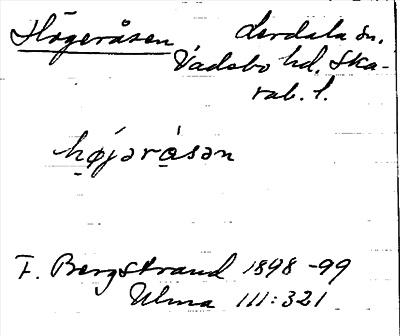 Högeråsen Lerdala sn.
Vadsbo hd. Ska-
rab. l.
hø̀jərå̀sən
F. Bergstrand 1898-99
Ulma 111:321